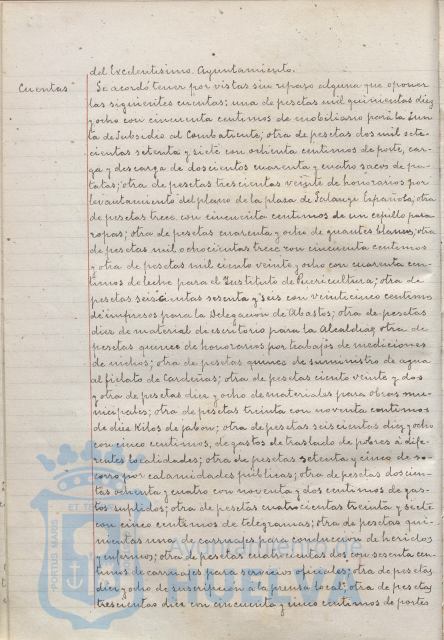 del Excelentisimo Ayuntamiento.
Cuentas Se acordó tener por vistas sin reparo alguno que oponer
las siguientes cuentas: una de pesetas mil quinientas diez
y ocho con cincuenta centimos de mobiliario para la Jun-
ta de Subsidio al Combatiente; otra de pesetas dos mil sete-
cientas setenta y siete con ochenta centimos de porte, car-
ga y descarga de doscientos cuarenta y cuatro sacos de pa-
tatas; otra de pesetas trescientas veinte de honorarios por
levantamiento del plano de la plaza de Falange Española; otra
de pesetas trece con cincuenta centimos de un cepillo para
ropas; otra de pesetas cuarenta y ocho de guantes blancos; otra
de pesetas mil ochocientas trece con cincuenta centimos
y otra de pesetas mil ciento veinte y ocho con cuarenta cen-
timos de leche para el Instituto de Puericultura; otra de
pesetas seiscientas sesenta y seis con veinticinco centimos
de impresos para la Delegacion de Abastos; otra de pesetas
diez de material de escritorio para la Alcaldia; otra de
pesetas quince de honorarios por trabajos de mediciones
de nichos; otra de pesetas quince de suministro de agua
al fielato de Cardeñas; otra de pesetas ciento veinte y dos
y otra de pesetas diez y ocho de materiales para obras mu-
nicipales; otra de pesetas treinta con noventa centimos
de diez kilos de jabon; otra de pesetas seiscientas diez y ocho
con cinco centimos, de gastos de traslado de pobres á dife-
rentes localidades; otra de pesetas setenta y cinco de so-
corro por calamidades públicas; otra de pesetas doscien-
tas ochenta y cuatro con noventa y dos centimos de gas-
tos suplidos; otra de pesetas cuatrocientas treinta y siete
con cinco centimos de telegramas; otra de pesetas qui-
nientas una de carruajes para conduccion de heridos
y enfermos; otra de pesetas cuatrocientas dos con sesenta cen-
timos de carruajes para servicios oficiales; otra de pesetas
diez y ocho de suscripcion a la prensa local; otra de pesetas
trescientas diez con cincuenta y cinco centimos de portes
PORTUS MARIS ET TE